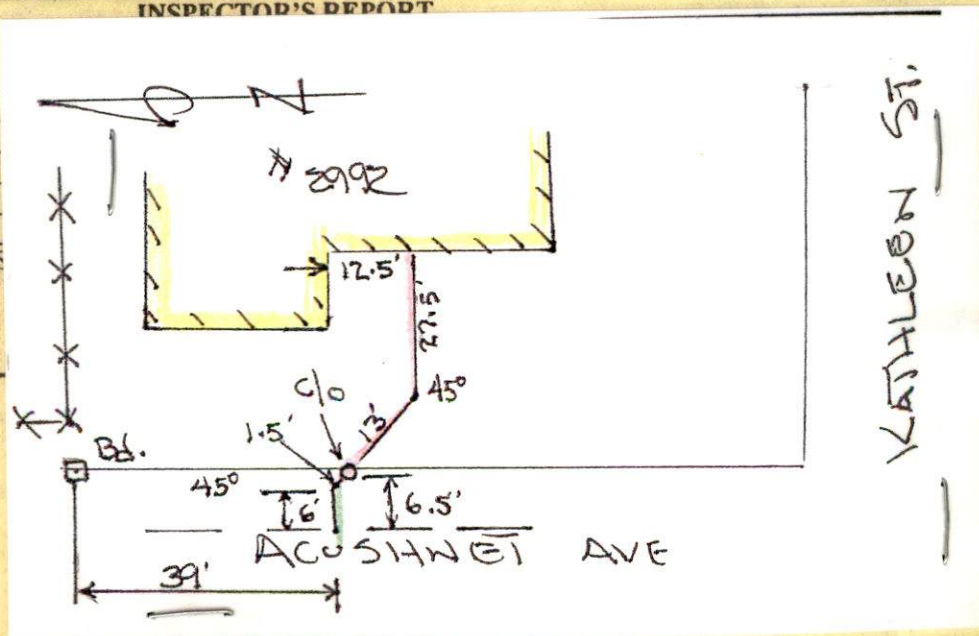 INSPECTOR'S REPORT
N
# 2992
12.5'
27.5'
45°
C/O
13'
1.5'
Bd.
45°
6'
6.5'
ACUSHNET AVE
39'
KATHLEEN ST.